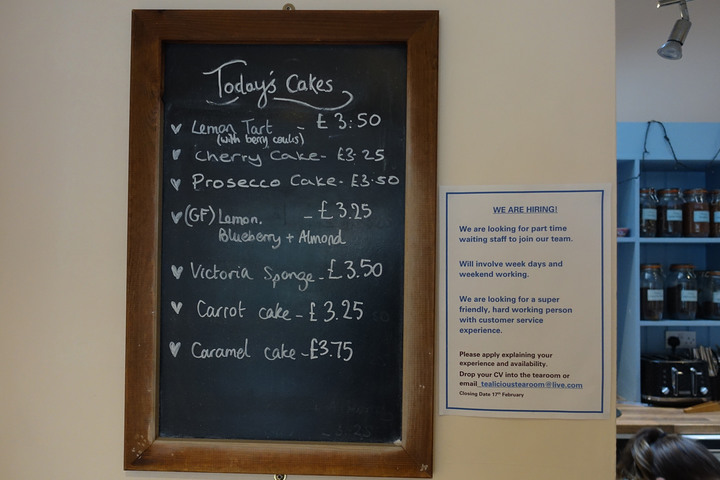 Today's Cakes
Lemon Tart - £3.50
(with berry coulis)
Cherry Cake - £3.25
Prosecco Cake - £3.50
(GF) Lemon. - £3.25
Blueberry + Almond
Victoria Sponge - £3.50
Carrot cake - £3.25
Caramel cake - £3.75
WE ARE HIRING!
We are looking for part time
waiting staff to join our team.
Will involve week days and
weekend working.
We are looking for a super
friendly, hard working person
with customer service
experience.
Please apply explaining your
experience and availability.
Drop your CV into the tearoom or
email tealicioustearoom@live.com
Closing Date 17th February